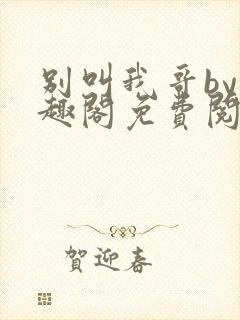 别叫我哥by
趣阁免费阅
賀迎春